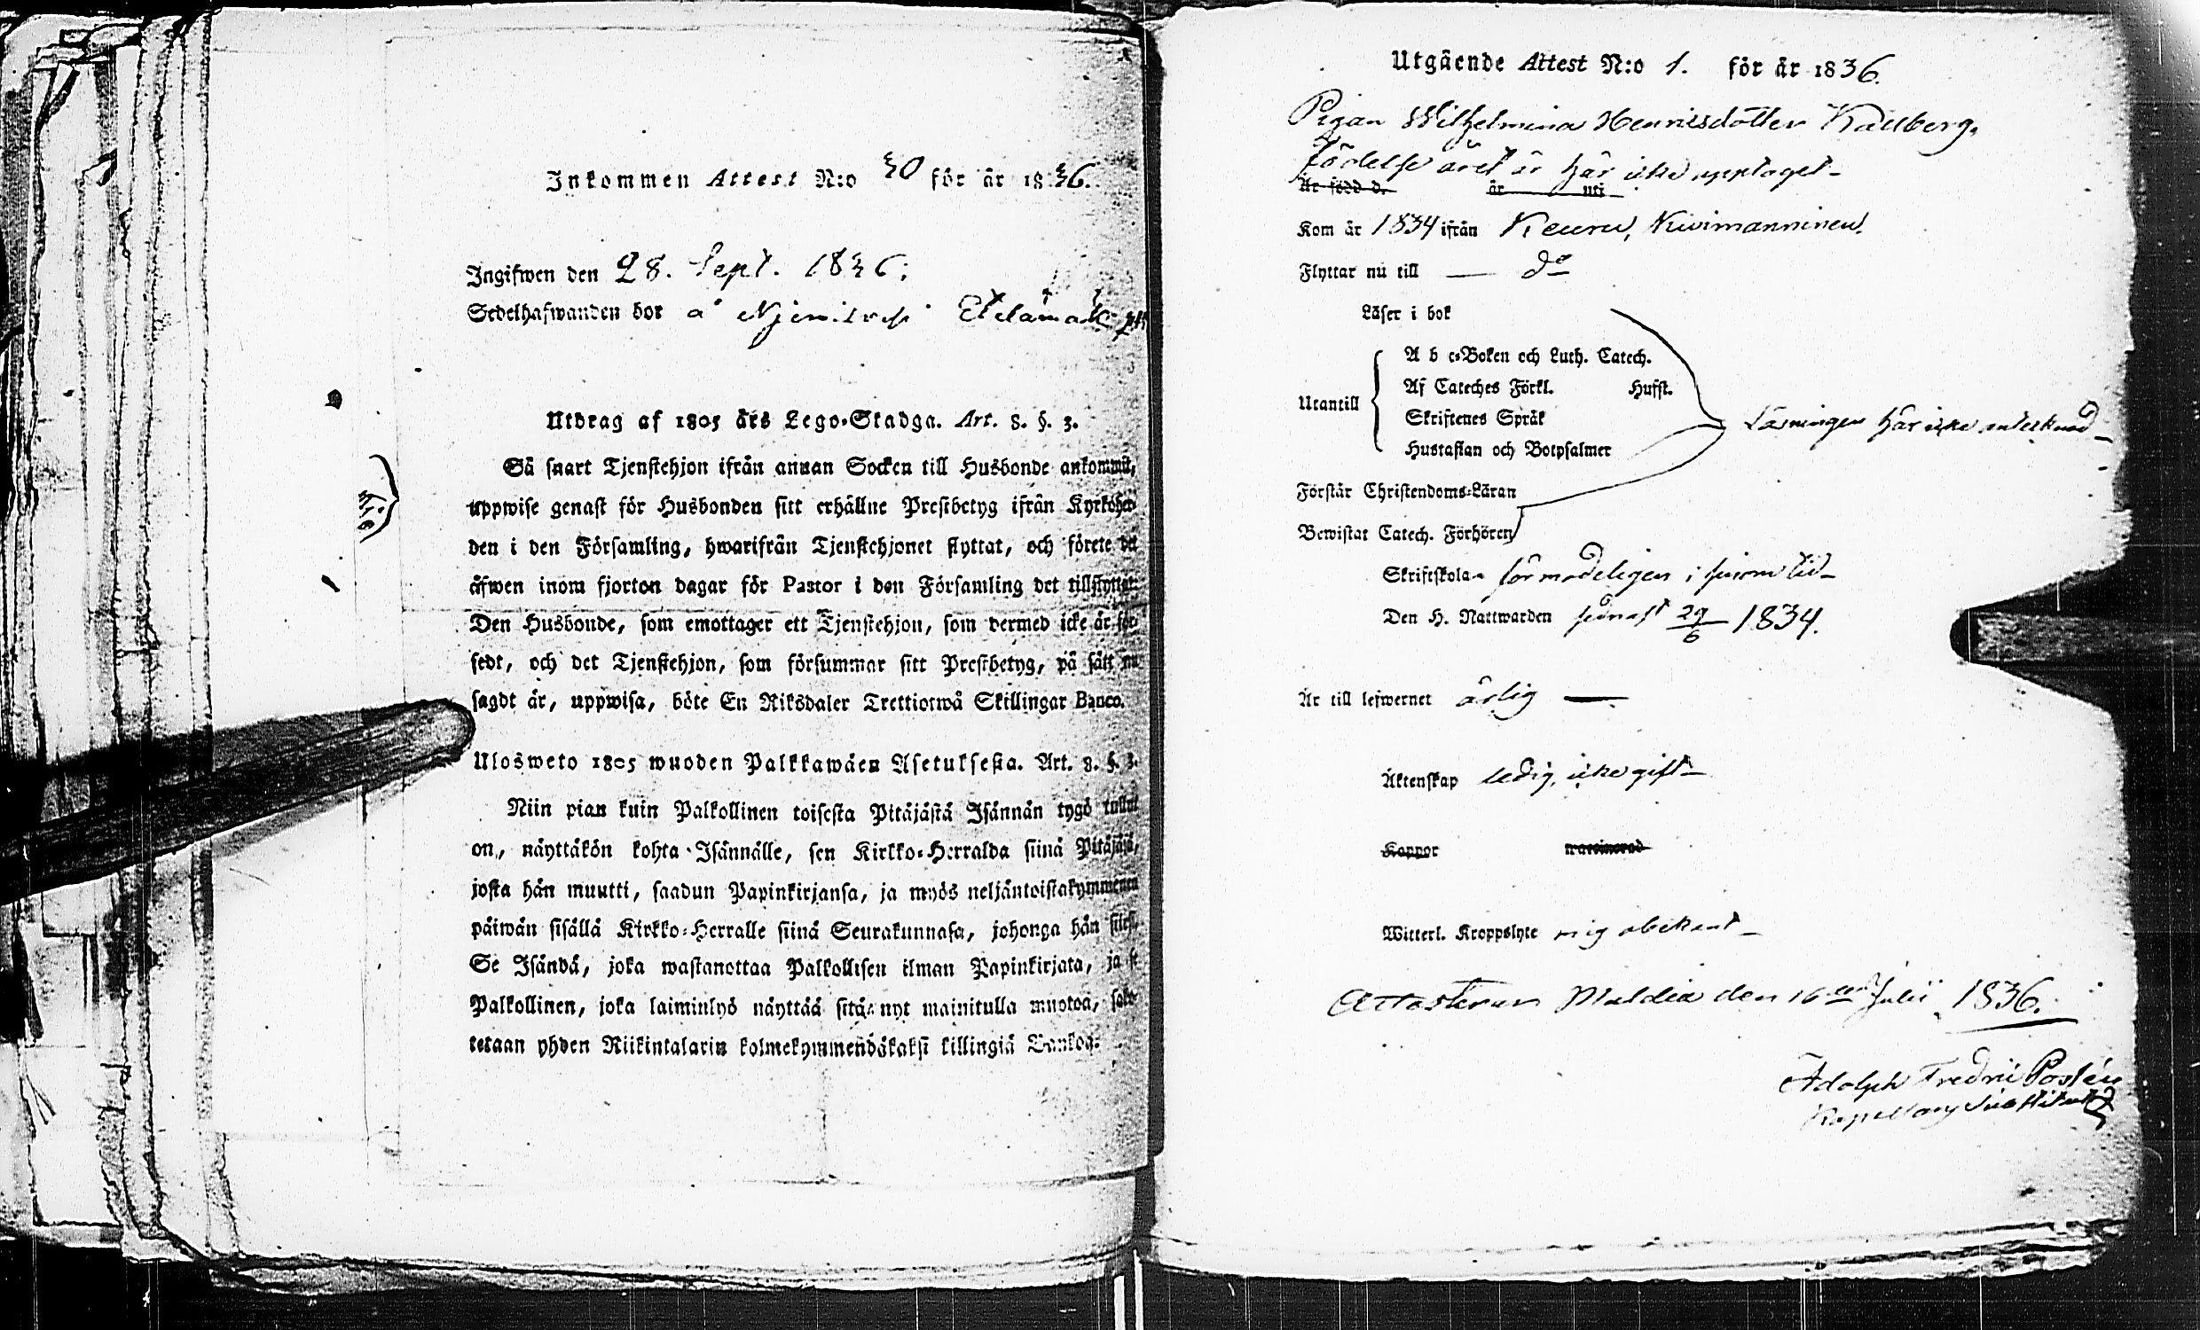 Inkommen Attest N:o 30 för år 1836.
Ingifwen den 28. Sept. 1836.
Sedelhafwanden bor å
Utdrag af 1805 års Lego-Stadga. Art. 8. §. 3.
Så snart Tjenstehjon ifrån annan Socken till Husbonde ankommit,
uppwise genast för Husbonden sitt erhållne Prestbetyg ifrån Kyrkoher-
den i den Församling, hwarifrån Tjenstehjonet flyttat, och förete det
äfwen inom fjorton dagar för Pastor i den Församling det tillflyttat.
Den Husbonde, som emottager ett Tjenstehjon, som dermed icke är för-
sedt, och det Tjenstehjon, som försummar sitt Prestbetyg, på sätt nu
sagdt är, uppwisa, böte En Riksdaler Trettiotwå Skillingar Banco.
Ulosweto 1805 wuoden Palkkawäen Asetuksesta. Art. 8. §. 3.
Niin pian kuin Palkollinen toisesta Pitäjästä Isännän tygö tullut
on, näyttäkön kohta Isännälle, sen Kirkko-Herralda siinä Pitäjäsä,
josta hän muutti, saadun Papinkirjansa, ja myös neljäntoistakymmenen
päiwän sisällä Kirkko-Herralle siinä Seurakunnasa, johonga hän
Se Isändä, joka wastanottaa Palkollisen ilman Papinkirjata, ja se
Palkollinen, joka laiminlyö näyttää sitä nyt mainitulla muotoa, sako-
tetaan yhden Riikintalarin kolmekymmendäkaksi killingiä Bankoa.
Utgående Attest N:o 1. för år 1836.
Pigan Wilhelmina Henricsdotter Kallberg.
födelse året är här icke upptaget
Är född d. år uti
Kom år 1834 ifrån Keuru, Kivimanninen.
Flyttar nu till — do
Läser i bok
A b c-Boken och Luth. Catech.
Af Cateches Förkl. Hufst.
Utantill
Skriftenes Språk
Läsningen här icke antecknad
Hustaflan och Botpsalmer
Förstår Christendoms-Läran
Bewistat Catech. Förhören
Skriftskolan förmodeligen i sinom tid
Den H. Nattwarden sednast 29/6 1834.
Är till lefwernet ärlig —
Äktenskap ledig, icke gift
Koppor vaccinerad
Witterl. Kroppslyte mig obekant
Attesterar Muldia den 16 Julii 1836.
Adolph Fredric Postén